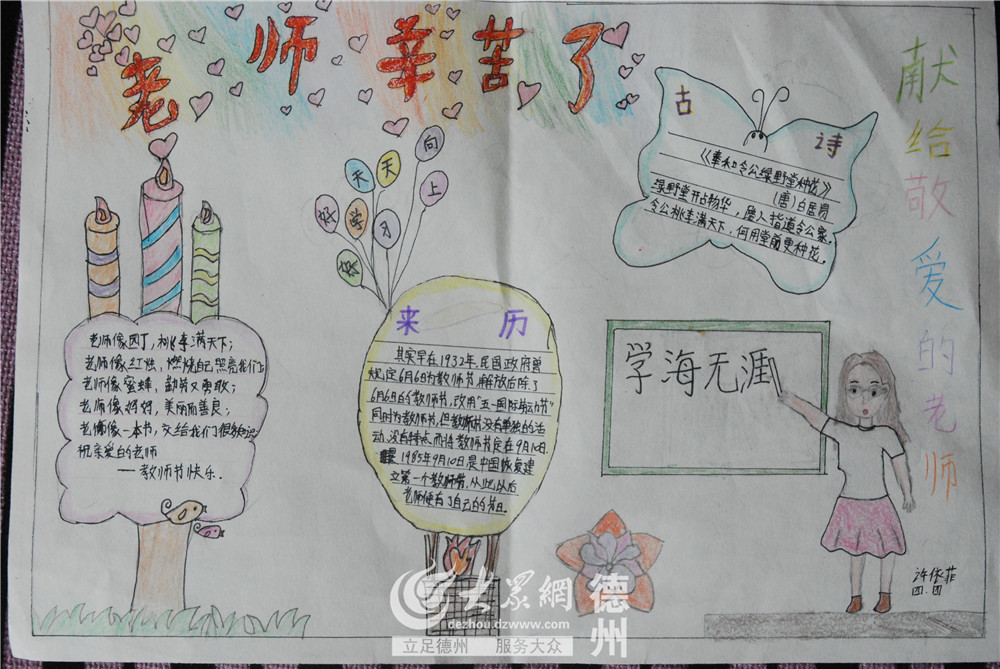 老师辛苦了
献给敬爱的老师
古诗
《奉和令公绿野堂种花》
(唐)白居易
绿野堂开占物华，路人指道令公家。
令公桃李满天下，何用堂前更种花。
好好学习
天天向上
老师像园丁，桃李满天下；
老师像红烛，燃烧自己照亮我们；
老师像蜜蜂，勤劳又勇敢；
老师像妈妈，美丽而善良；
老师像一本书，交给我们很多知识
祝亲爱的老师
——教师节快乐.
来历
其实早在1932年,民国政府曾
规定6月6日为教师节,解放后除了
6月6日的教师节,改用"五一国际劳动节"
同时为教师节,但教师节没有单独的活
动,没有特点,而将教师节定在9月10日.
1985年9月10日是中国恢复建
立第一个教师节,从此以后
老师便有了自己的节日.
学海无涯
许依菲
四.四
大众網 德州
dezhou.dzwww.com
立足德州 服务大众